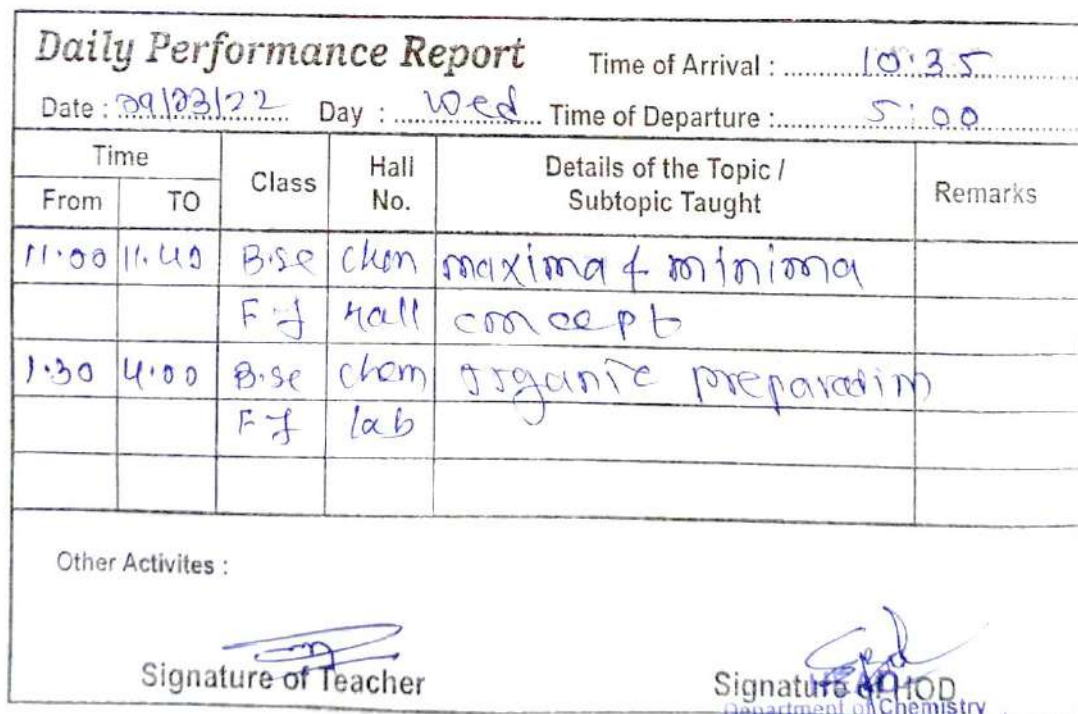 Daily Performance Report Time of Arrival : 10:35
Date : 09/03/22 Day : Wed Time of Departure : 5:00
Time Class Hall No. Details of the Topic / Subtopic Taught Remarks
From TO
11.00 11.40 B.Sc Chem maxima & minima
F Y Hall concept
1.30 4.00 B.Sc Chem organic preparation
F Y lab
Other Activites :
Signature of Teacher Signature of HOD
Department of Chemistry